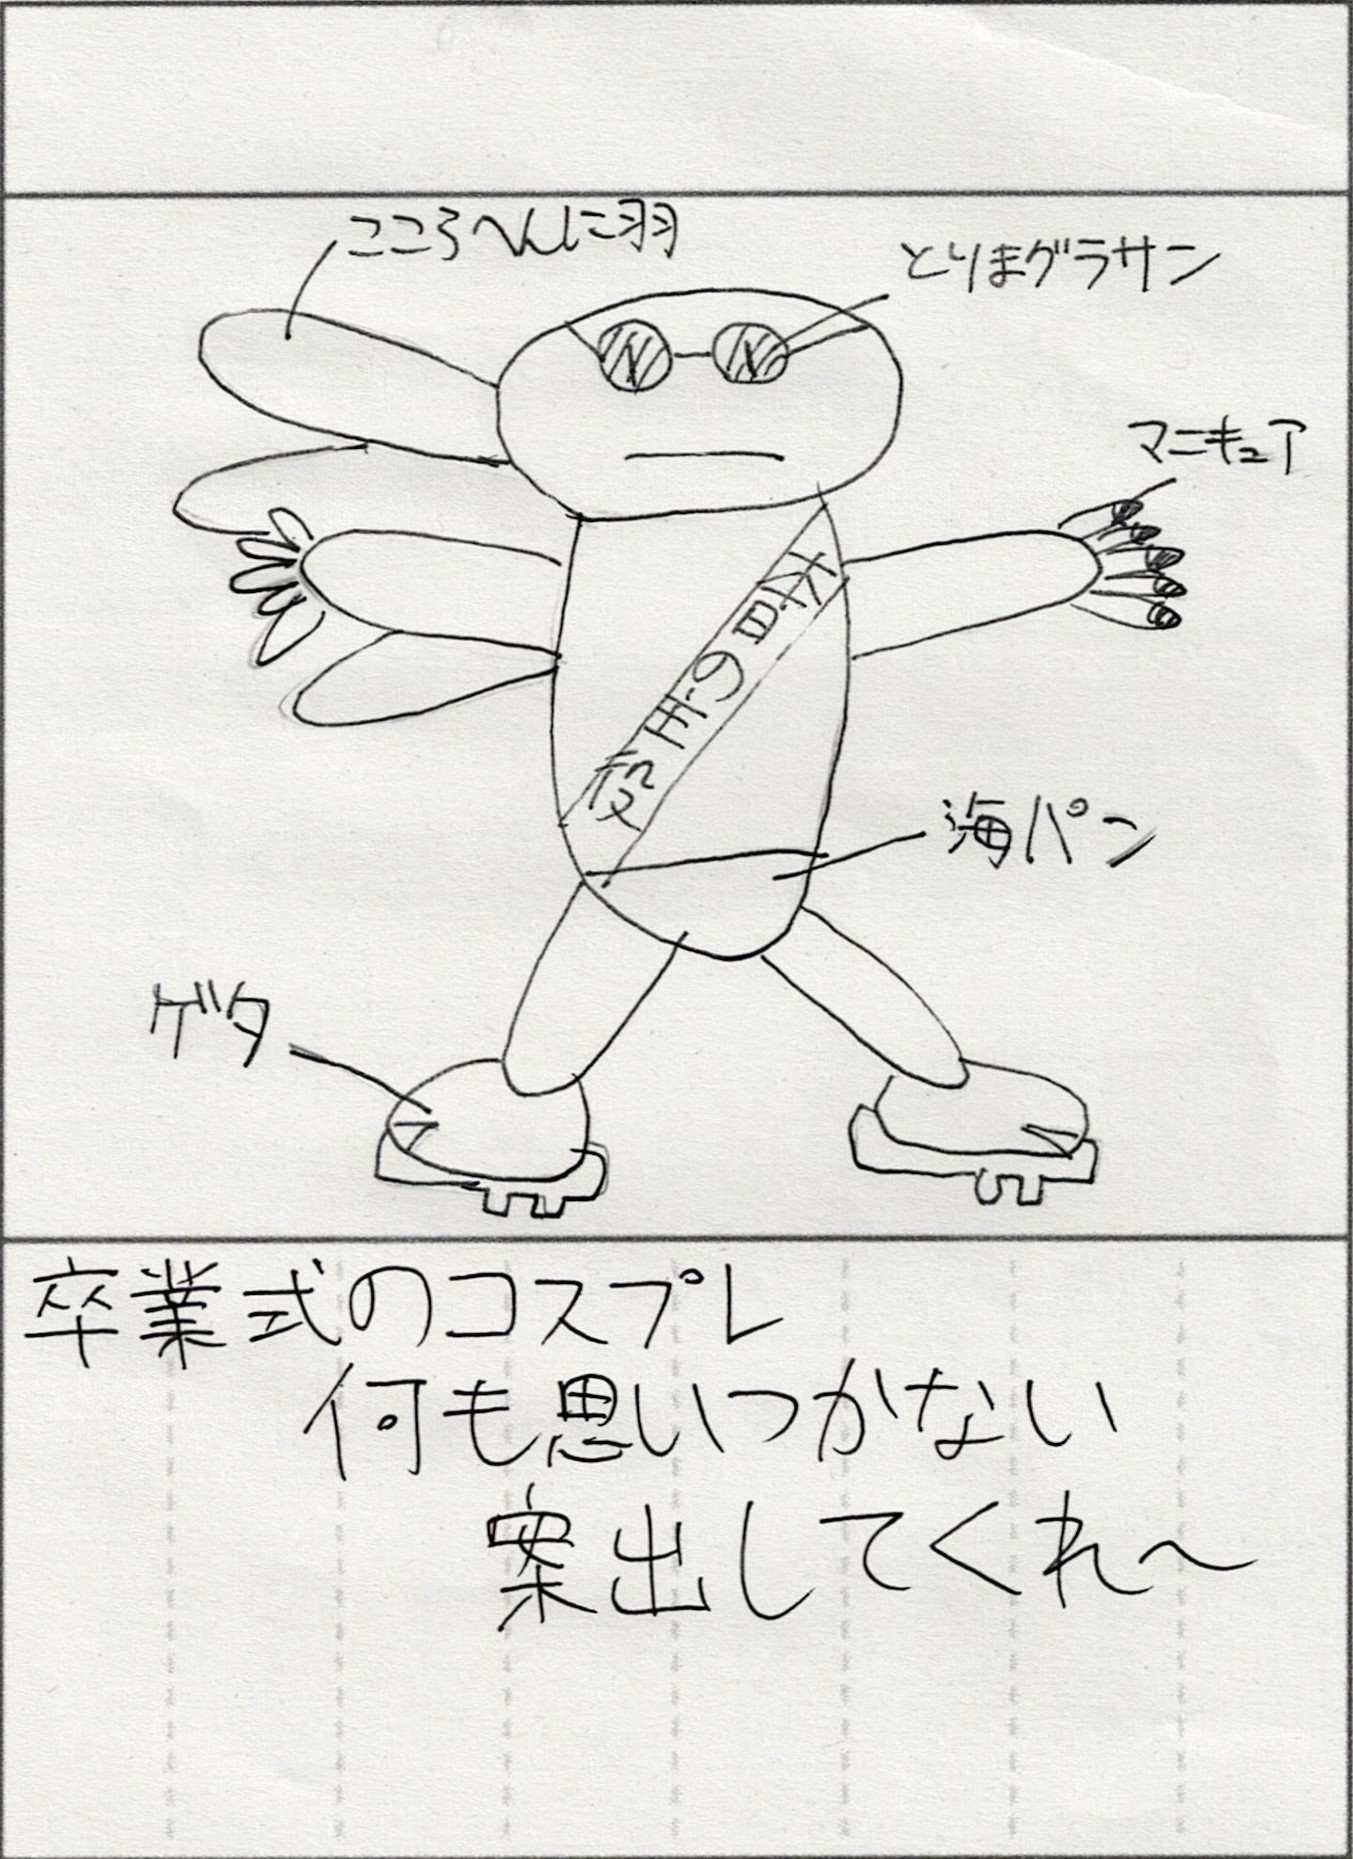 こころへんに羽
とりまグラサン
マニキュア
海パン
ゲタ
卒業式のコスプレ
何も思いつかない
案出してくれ〜